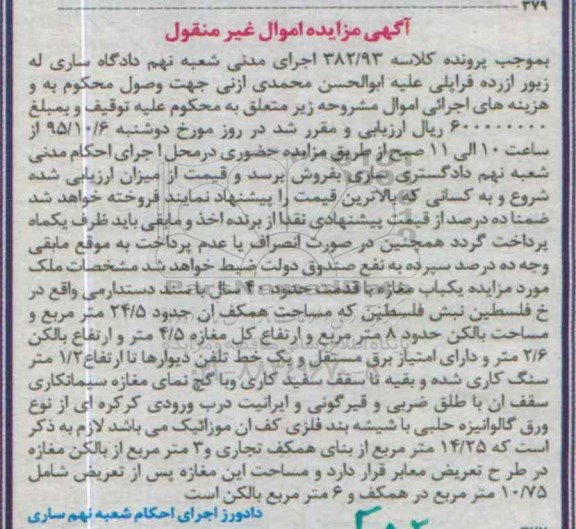 ۳۷۹
آگهی مزایده اموال غیر منقول
بموجب پرونده کلاسه ۳۸۲/۹۳ اجرای مدنی شعبه نهم دادگاه ساری له
زیور ازرده فراپلی علیه ابوالحسن محمدی ازنی جهت وصول محکوم به و
هزینه های اجرائی اموال مشروحه زیر متعلق به محکوم علیه توقیف و بمبلغ
۶۰۰۰۰۰۰۰۰ ریال ارزیابی و مقرر شد در روز مورخ دوشنبه ۹۵/۱۰/۶ از
ساعت ۱۰ الی ۱۱ صبح از طریق مزایده حضوری درمحل ا جرای احکام مدنی
شعبه نهم دادگستری ساری بفروش برسد و قیمت از میزان ارزیابی شده
شروع و به کسانی که بالاترین قیمت را پیشنهاد نمایند فروخته خواهد شد
ضمنا ده درصد از قیمت پیشنهادی نقدا از برنده اخذ و مابقی باید ظرف یکماه
پرداخت گردد همچنین در صورت انصراف یا عدم پرداخت به موقع مابقی
وجه ده درصد سپرده به نفع صندوق دولت ضبط خواهد شد مشخصات ملک
مورد مزایده یکباب مغازه با قدمت حدود ۴۰ سال با سند دستدارمی واقع در
خ فلسطین نبش فلسطین که مساحت همکف ان حدود ۲۴/۵ متر مربع و
مساحت بالکن حدود ۸ متر مربع و ارتفاع کل مغازه ۴/۵ متر و ارتفاع بالکن
۲/۶ متر و دارای امتیاز برق مستقل و یک خط تلفن دیوارها تا ارتفاع ۱/۲ متر
سنگ کاری شده و بقیه تا سقف سفید کاری وبا گچ نمای مغازه سیمانکاری
سقف ان با طلق ضربی و قیرگونی و ایرانیت درب ورودی کرکره ای از نوع
ورق گالوانیزه حلبی با شیشه بند فلزی کف ان موزائیک می باشد لازم به ذکر
است که ۱۴/۲۵ متر مربع از بنای همکف تجاری و۳ متر مربع از بالکن مغازه
در طر ح تعریض معابر قرار دارد و مساحت این مغازه پس از تعریض شامل
۱۰/۷۵ متر مربع در همکف و ۶ متر مربع بالکن است
دادورز اجرای احکام شعبه نهم ساری